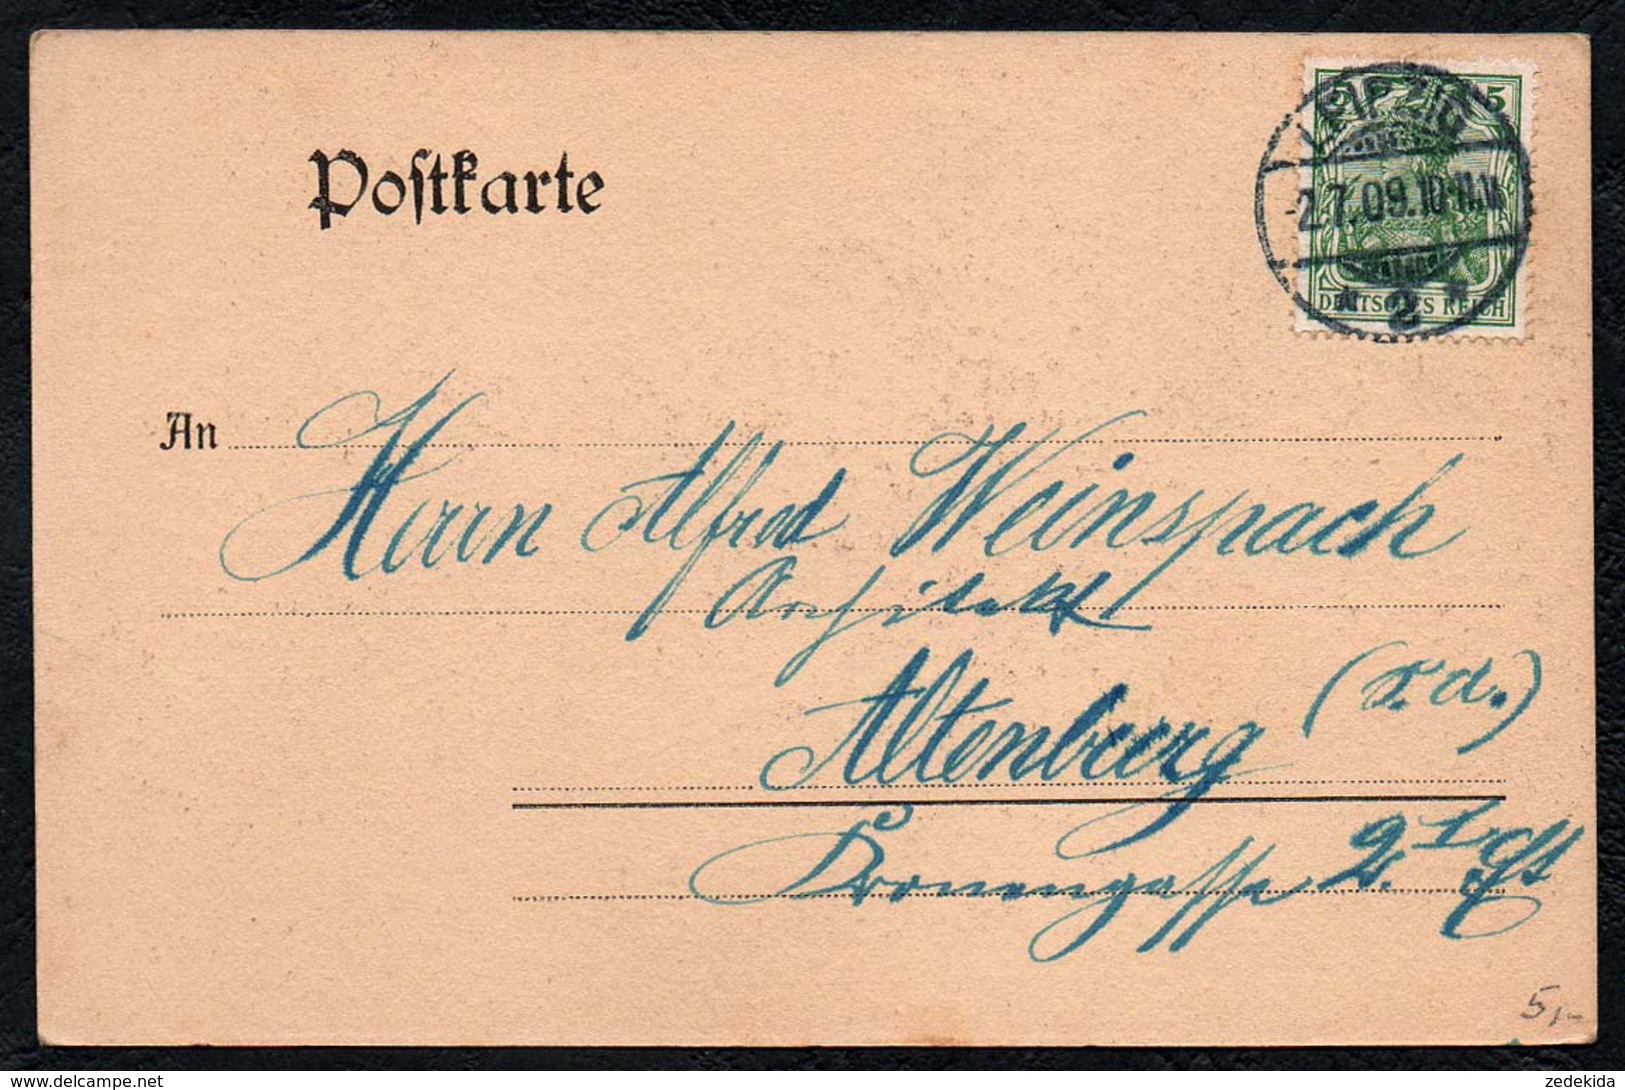 5 5
LEIPZIG
-2.7.09.10-11.V.
* 2 *
DEUTSCHES REICH
Postkarte
An Herrn Alfred Weinspach
Architekt
Altenburg (S. A.)
Kronengasse 2. I.
5,-
delcampe.net
zedekida